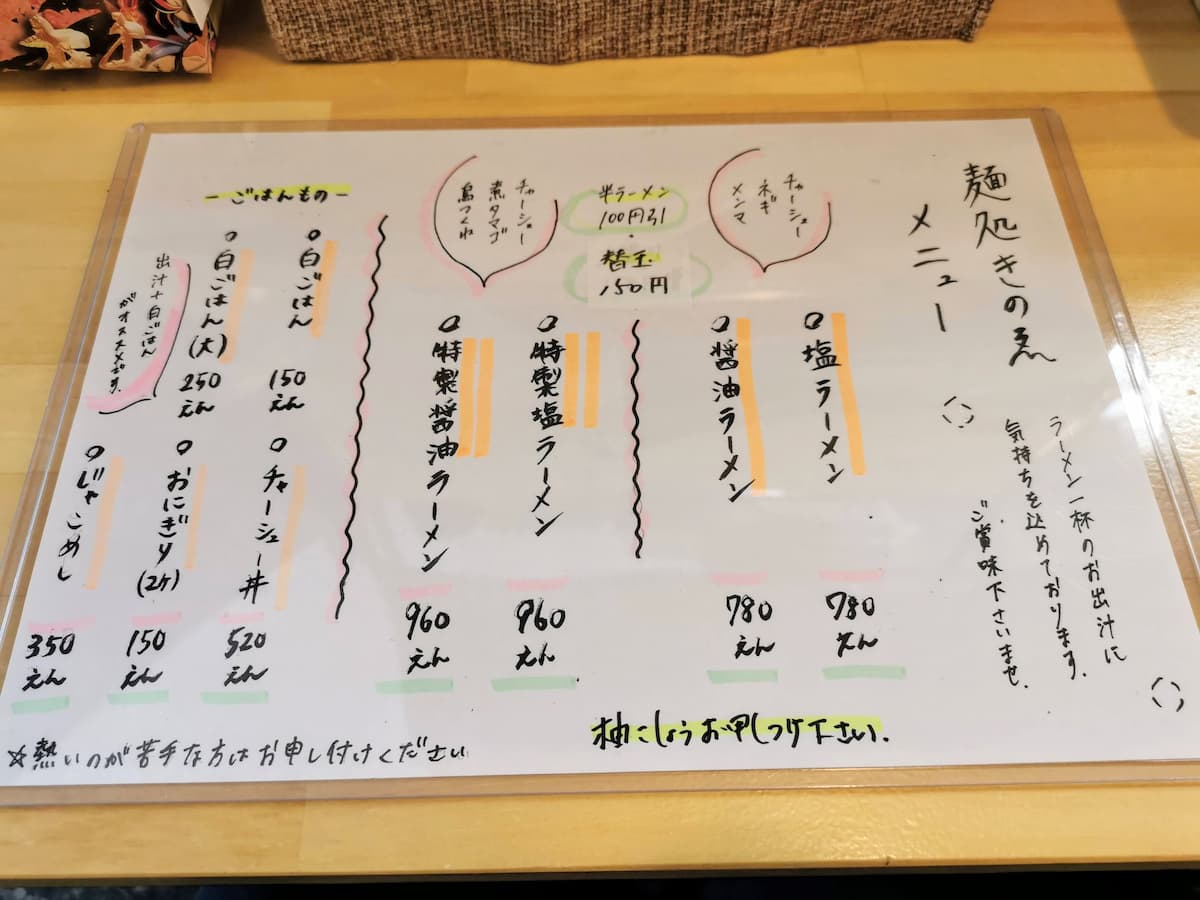 麺処きのゑ
メニュー
ラーメン一杯のお出汁に
気持ちを込めております。
ご賞味下さいませ。
チャーシュー
ネギ
メンマ
塩ラーメン
780
えん
醤油ラーメン
780
えん
半ラーメン
100円引
・
替玉
150円
チャーシュー
煮タマゴ
鳥つくね
特製塩ラーメン
960
えん
特製醤油ラーメン
960
えん
柚こしょうお申しつけ下さい。
－ごはんもの－
白ごはん
150
えん
白ごはん(大)
250
えん
出汁+白ごはん
がオススメです。
チャーシュー丼
520
えん
おにぎり(2ケ)
150
えん
じゃこめし
350
えん
☆熱いのが苦手な方はお申し付けください